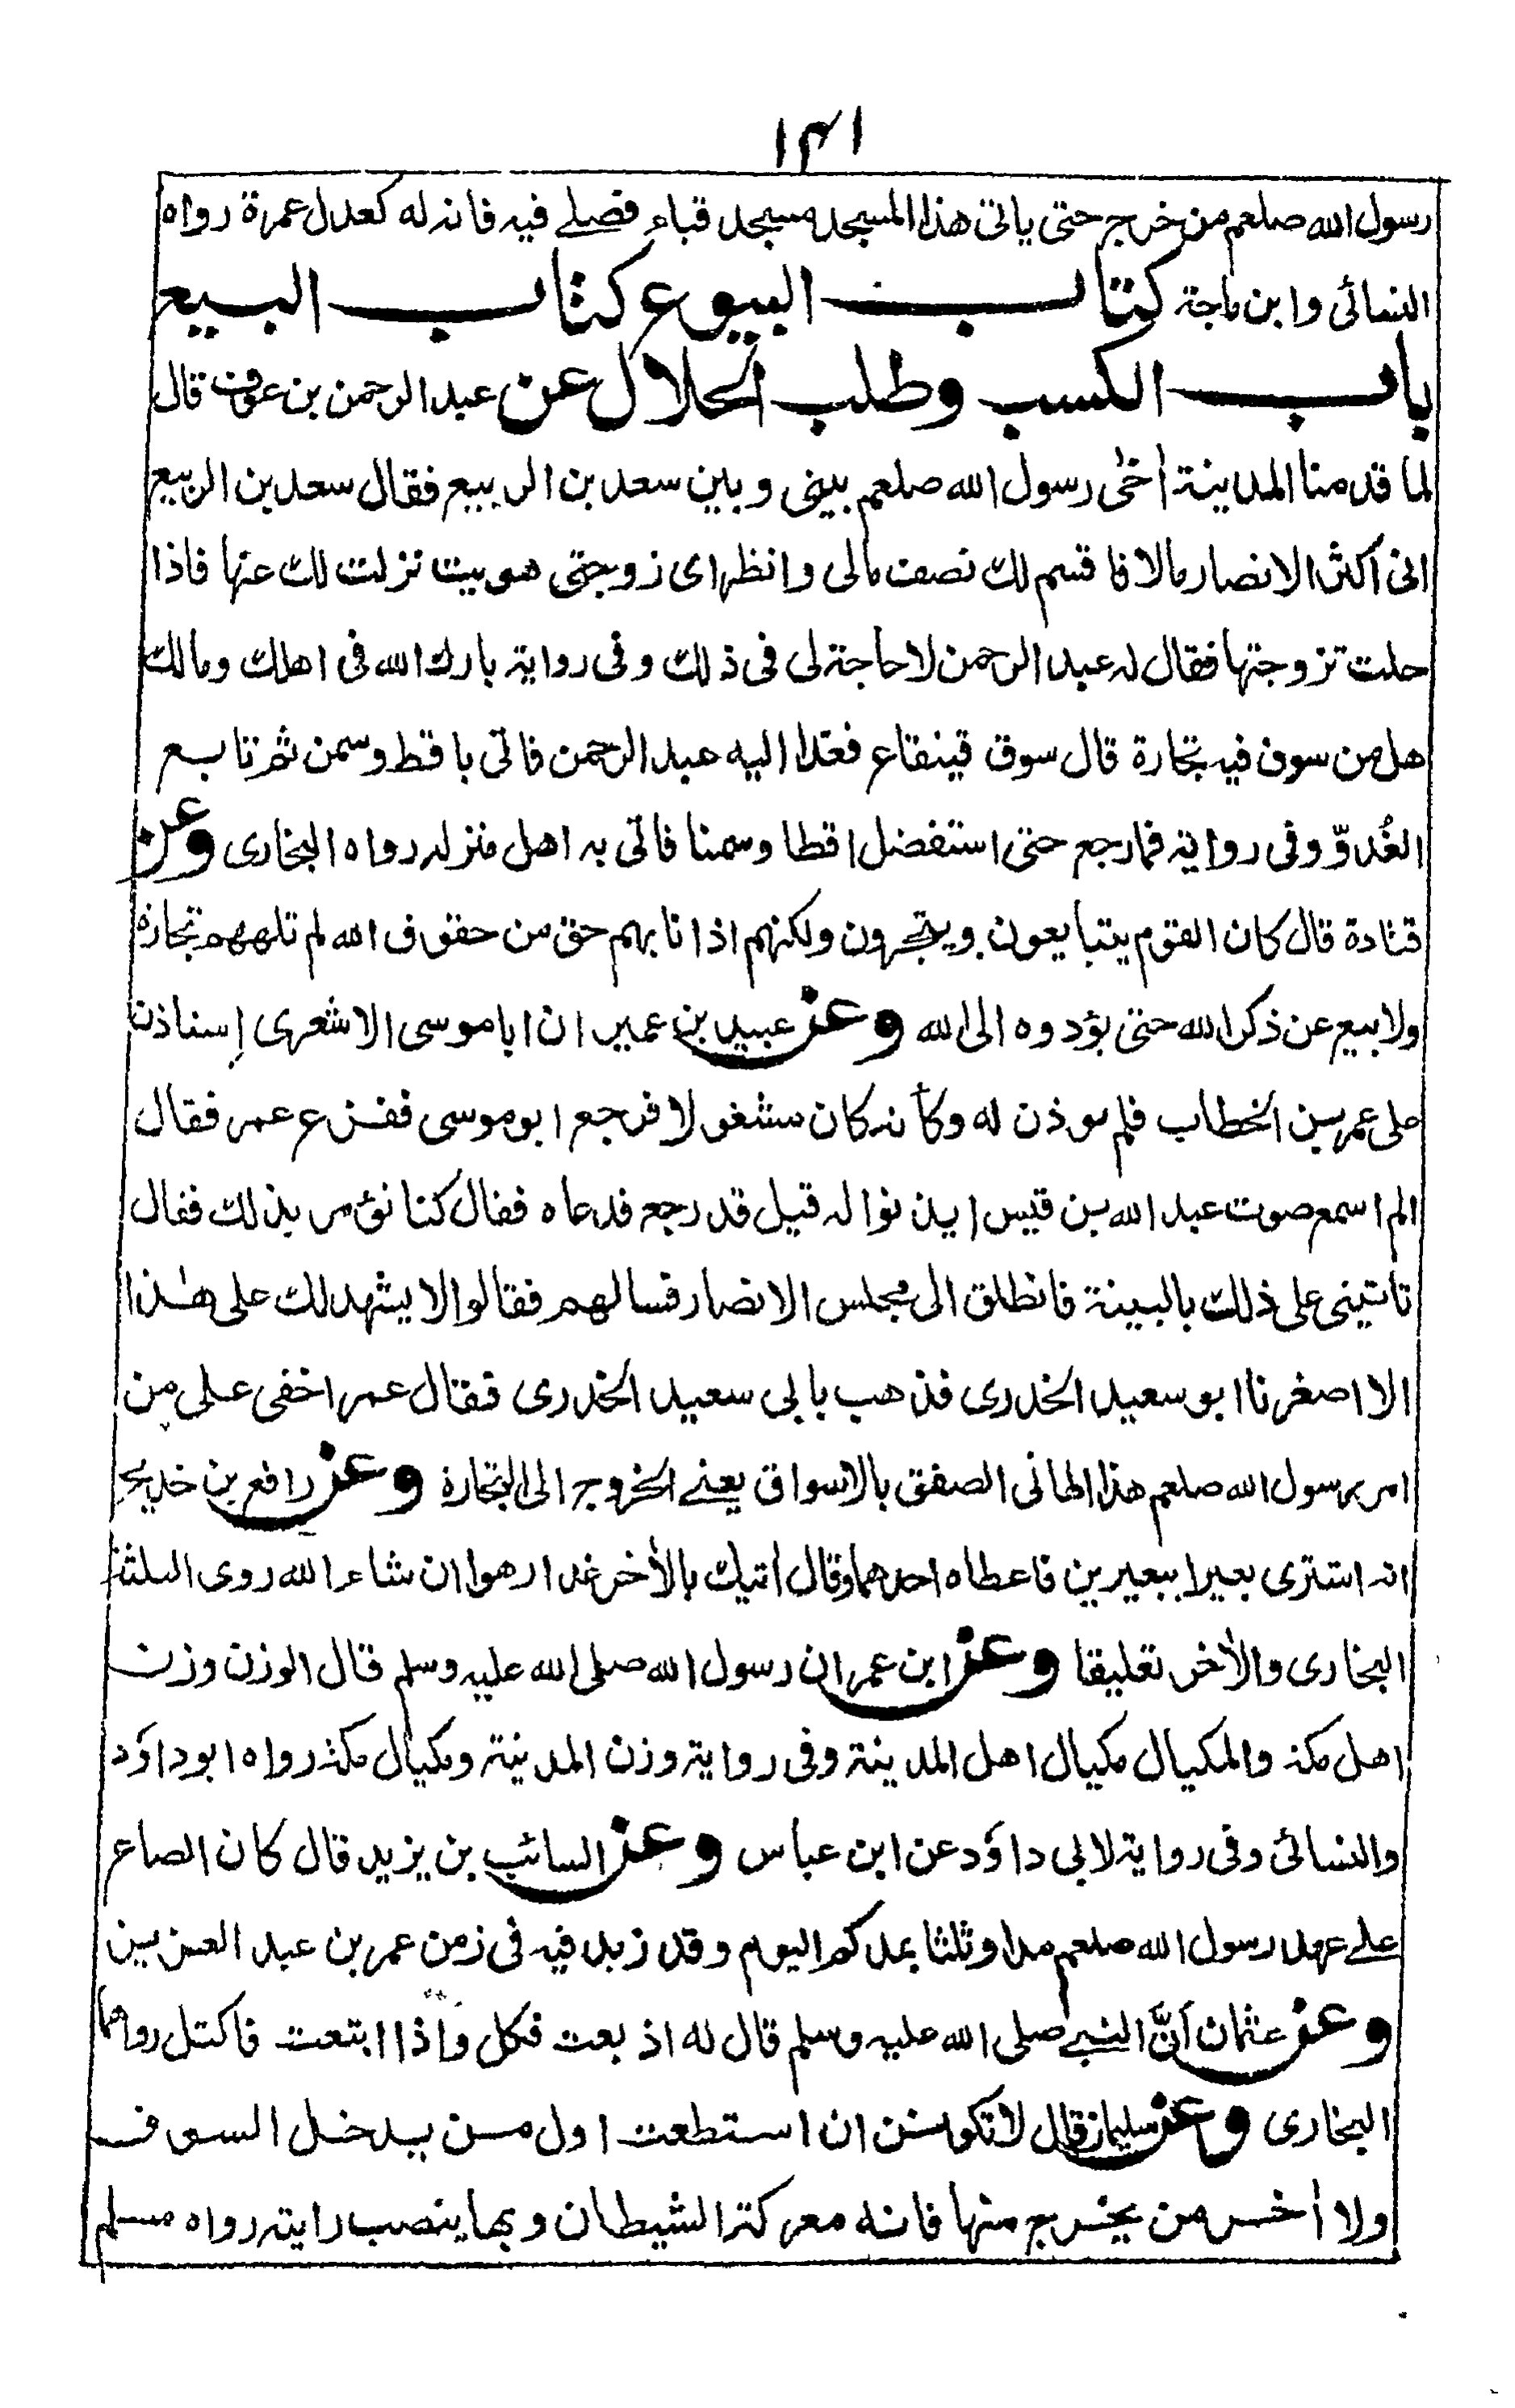 ١٤١
رسول الله صلعم من خرج حتى ياتى هذا المسجد مسجد قباء فصلے فيه فانه له كعدل عمرة رواه
النسائى وابن ماجة كتاب البيوع كتاب البيع
باب الكسب وطلب الحلال عن عبد الرحمن بن عوف قال
لما قدمنا المدينة اٰخى رسول الله صلعم بينى وبين سعد بن الربيع فقال سعد بن الربيع
انى اكثر الانصار مالا فاقسم لك نصف مالى وانظر اى زوجتى هويت نزلت لك عنها فاذا
حلت تزوجتها فقال له عبد الرحمن لا حاجة لى فى ذلك وفى رواية بارك الله فى اهلك ومالك
هل من سوق فيه تجارة قال سوق قينقاع فغدا اليه عبد الرحمن فاتى باقط وسمن ثم تابع
الغُدوّ وفى رواية فما رجع حتى استفضل اقطا وسمنا فاتى به اهل منزله رواه البخارى وعن
قتادة قال كان القوم يتبايعون ويتجرون ولكنهم اذا نابهم حق من حقوق الله لم تلههم تجارة
ولا بيع عن ذكر الله حتى يؤدوه الى الله وعن عبيد بن عمير ان ابا موسى الاشعرى إستاذن
على عمر بن الخطاب فلم يوذن له وكأنه كان مشغولا فرجع ابو موسى ففزع عمر فقال
الم اسمع صوت عبد الله بن قيس ايذنوا له قيل قد رجع فدعاه فقال كنا نؤمر بذلك فقال
تاتينى على ذلك بالبينة فانطلق الى مجلس الانصار فسالهم فقالوا لا يشهد لك على هٰذا
الا اصغرنا ابو سعيد الخدرى فذهب بابى سعيد الخدرى فقال عمر اخفى على من
امر رسول الله صلعم هذا الهانى الصفق بالاسواق يعنے الخروج الى التجارة وعن رافع بن خديج
انه اشترى بعيرا ببعيرين فاعطاه احدهما وقال اٰتيك بالاٰخر غدا رهوا ان شاء الله روى الثلثة
البخارى والاٰخر تعليقا وعن ابن عمر ان رسول الله صلى الله عليه وسلم قال الوزن وزن
اهل مكة والمكيال مكيال اهل المدينة وفى رواية وزن المدينة ومكيال مكة رواه ابو داؤد
والنسائى وفى رواية لابى داؤد عن ابن عباس وعن السائب بن يزيد قال كان الصاع
علے عهد رسول الله صلعم مدا وثلثا بمدكم اليوم وقد زيد فيه فى زمن عمر بن عبد العزيز
وعن عثمان اَنَّ النبے صلى الله عليه وسلم قال له اذ بعت فكل واذا ابتعت فاكتل رواهما
البخارى وعن سليمان قال لا تكونن ان استطعت اول من يدخل السوق
ولا اٰخر من يخرج منها فانه معركة الشيطان وبها ينصب رايته رواه مسلم